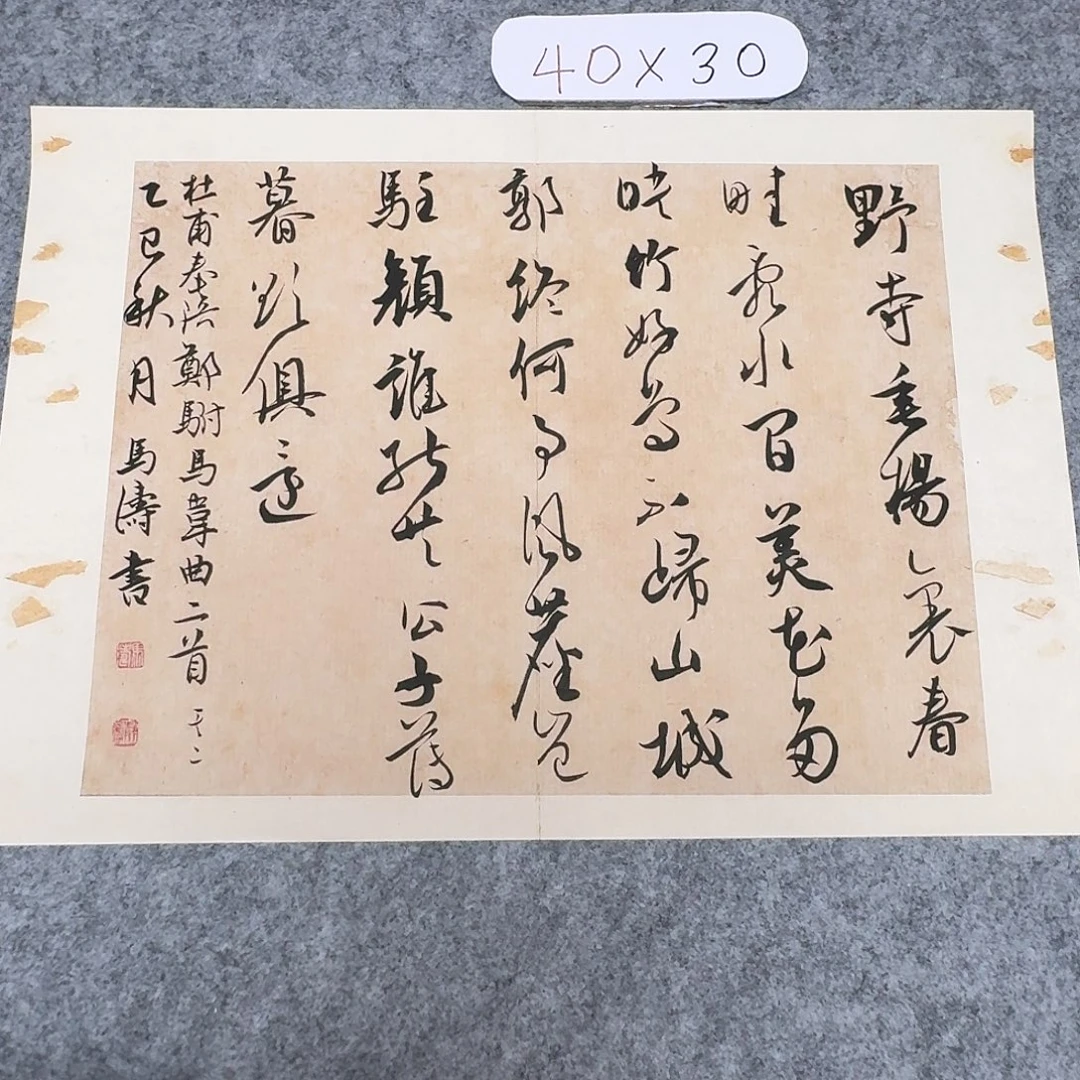 40X30
野寺垂楊裏春
畦亂水間美花多
映竹好鳥不歸山城
郭終何事風塵豈
駐顏誰能共公子薄
暮欲俱還
杜甫奉陪鄭駙馬韋曲二首其二
乙巳秋月馬濤書